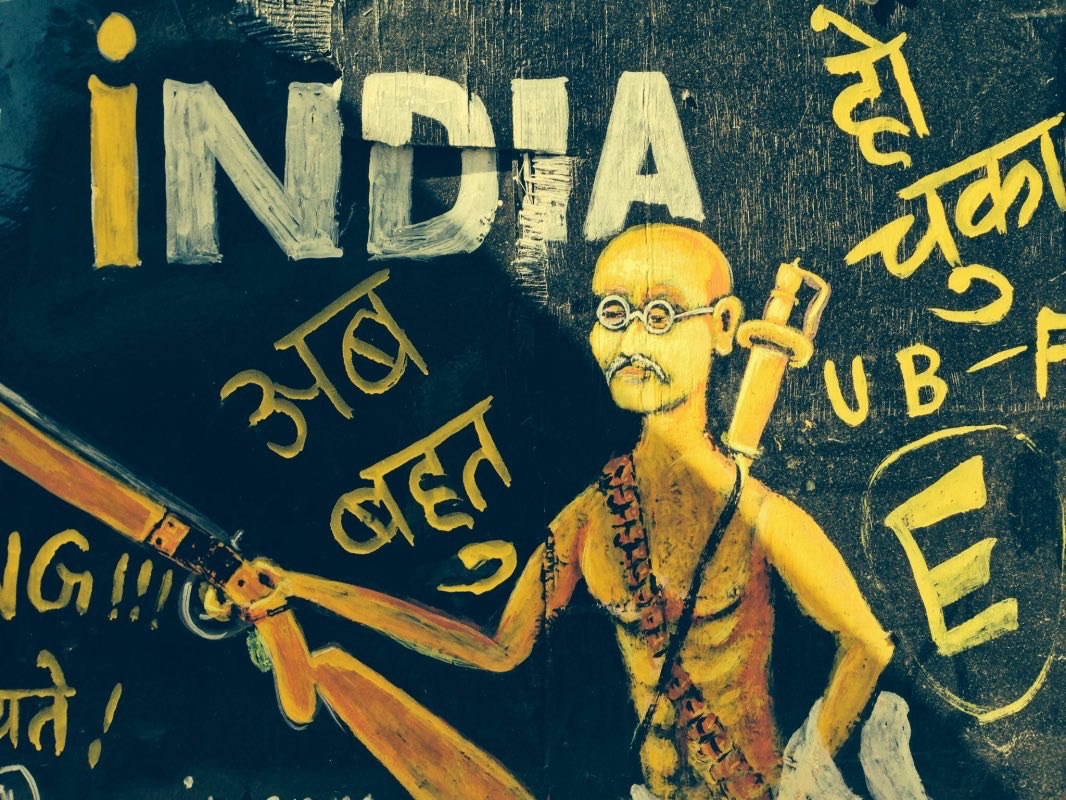 iNDIA
अब
बहुत
हो
चुका
UB-F
E
NG!!!
यते!